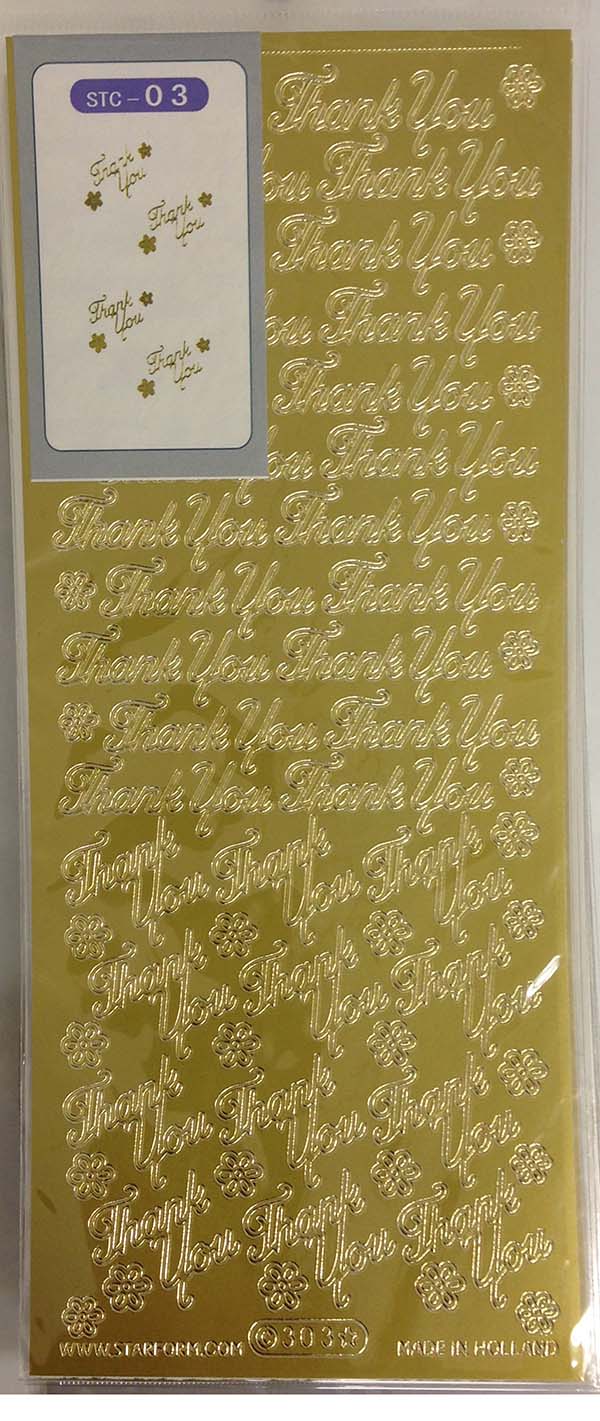 STC-03
Thank
You
Thank
You
Thank
You
Thank
You
Thank You
ou Thank You
Thank You
ou Thank You
Thank You
ou Thank You
Thank You Thank You
Thank You Thank You
Thank You Thank You
Thank You Thank You
Thank You Thank You
Thank Thank Thank
You You You
Thank Thank Thank
You You You
Thank Thank Thank
You You You
Thank Thank Thank
You You You
WWW.STARFORM.COM ©303☆ MADE IN HOLLAND